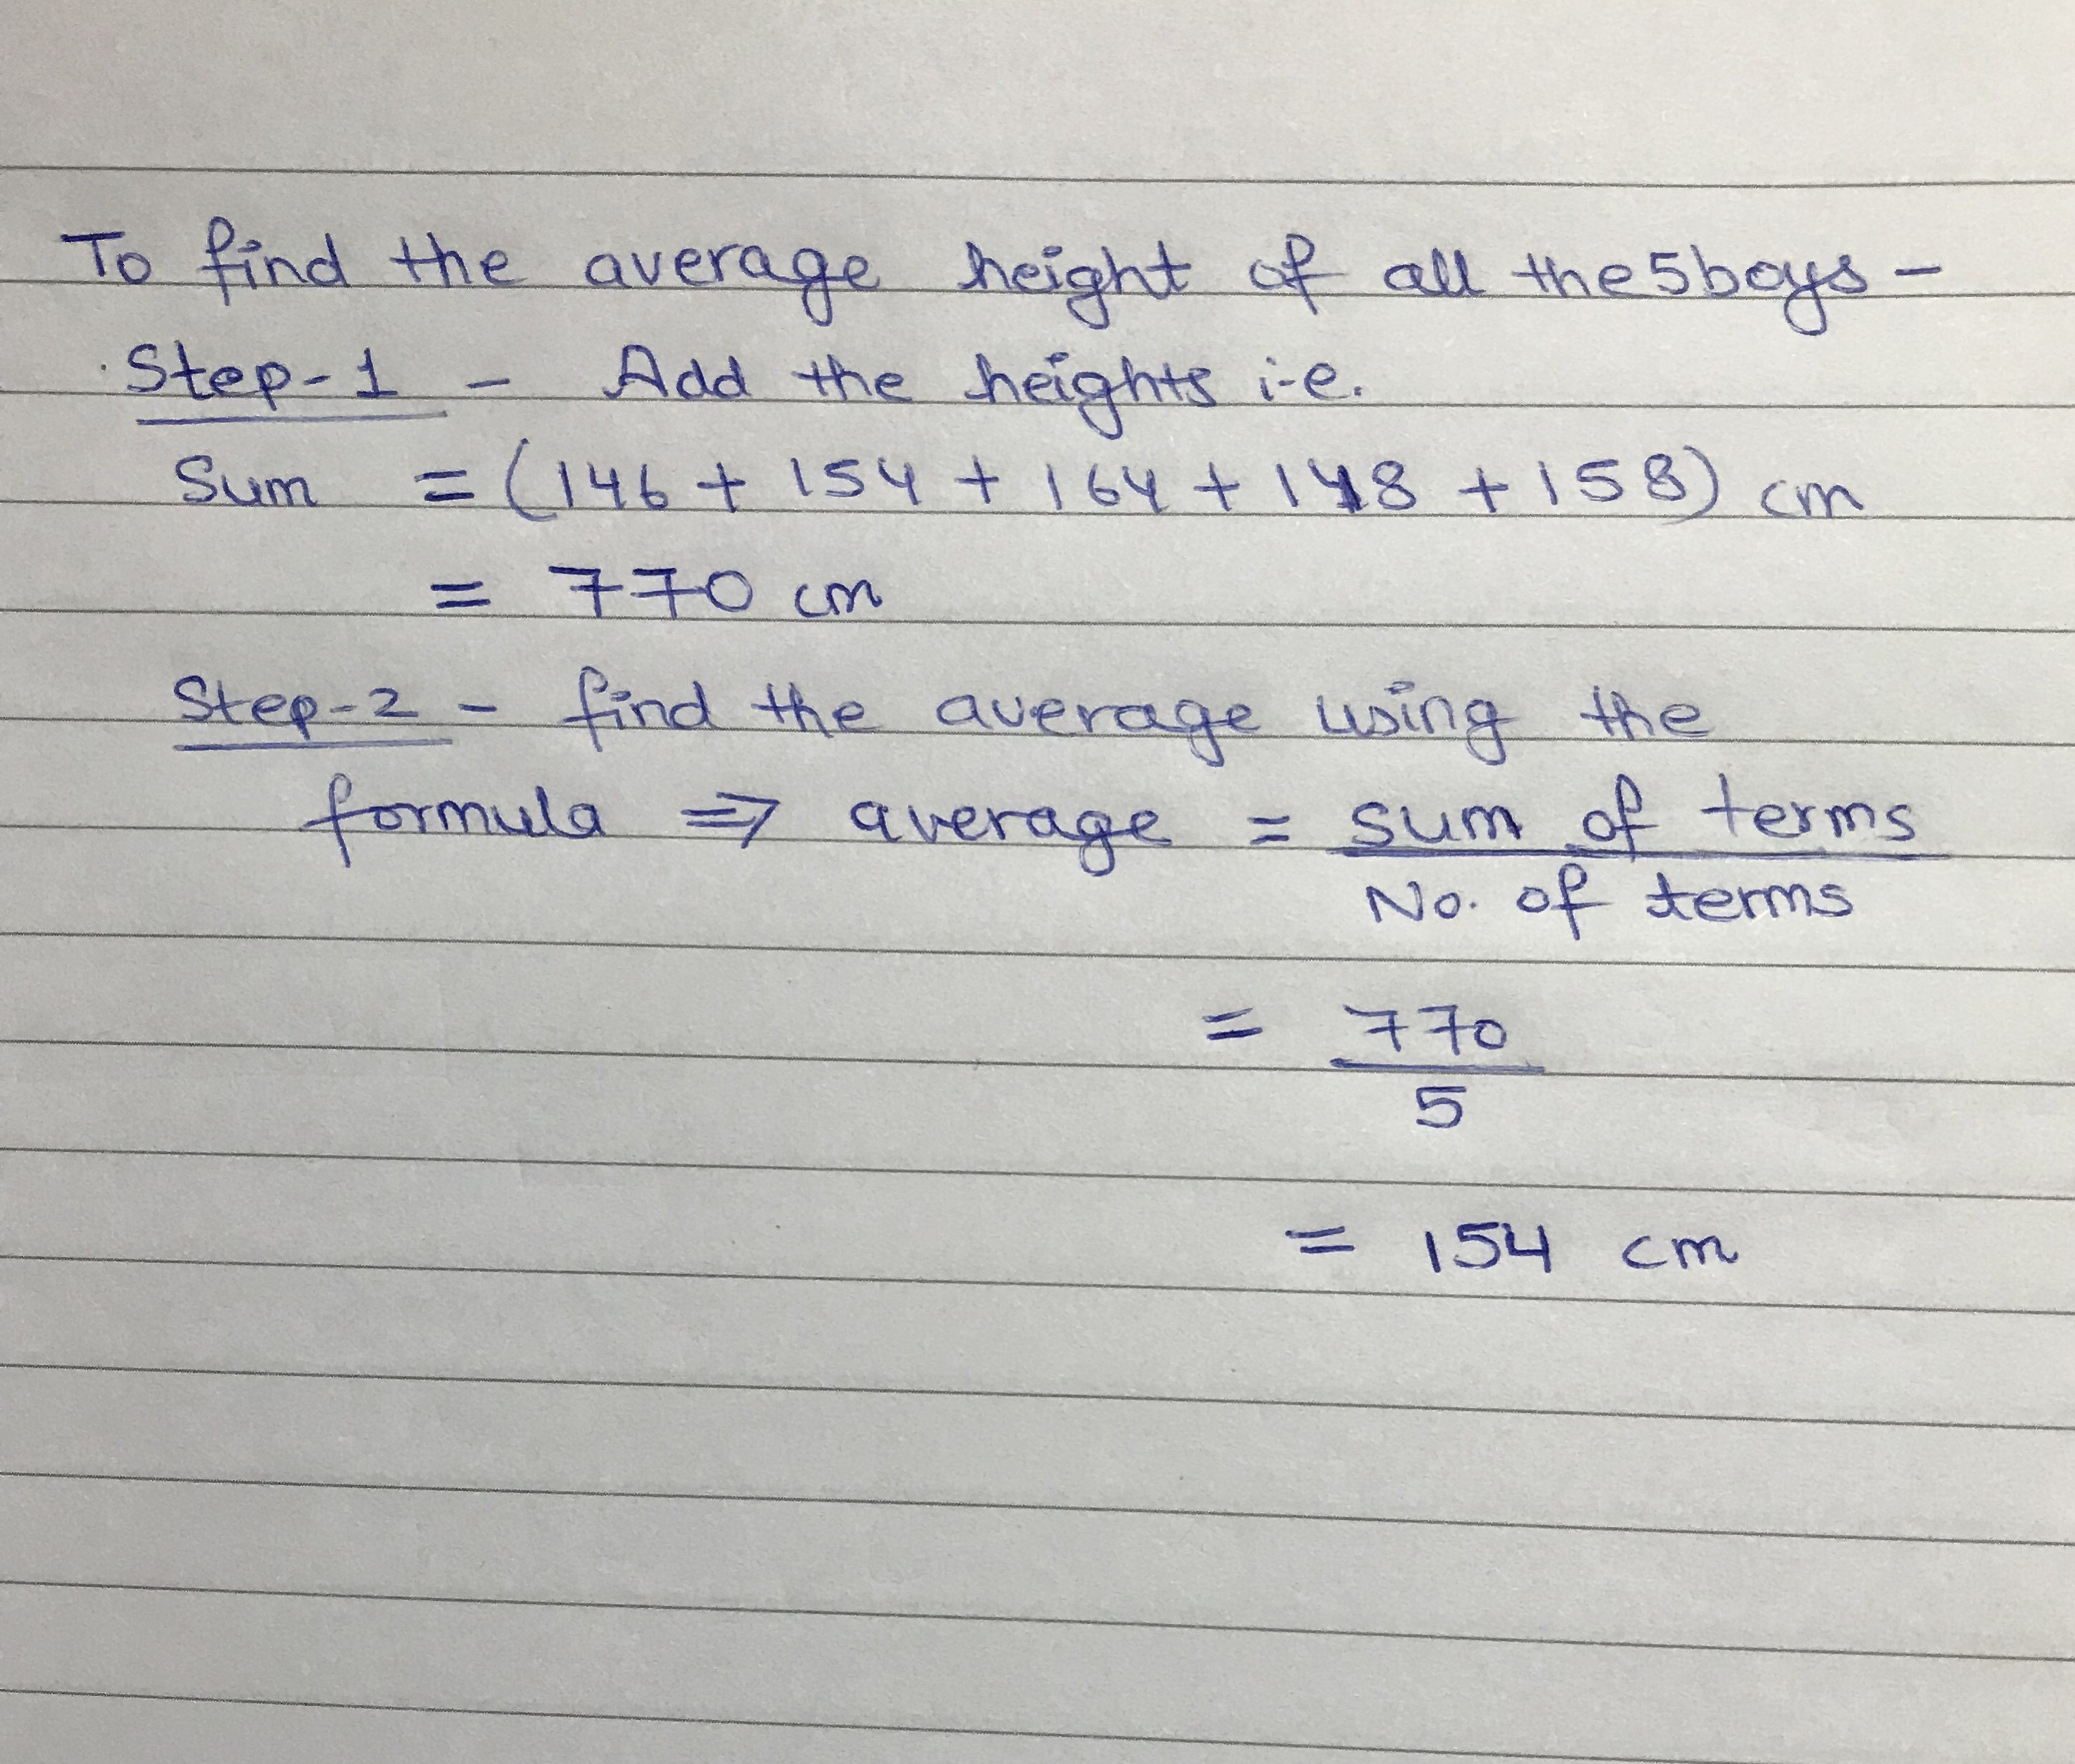 To find the average height of all the 5 boys -
Step-1 - Add the heights i.e.
Sum = (146 + 154 + 164 + 148 + 158) cm
= 770 cm
Step-2 - find the average using the
formula ⇒ average = sum of terms
No. of terms
= 770
5
= 154 cm